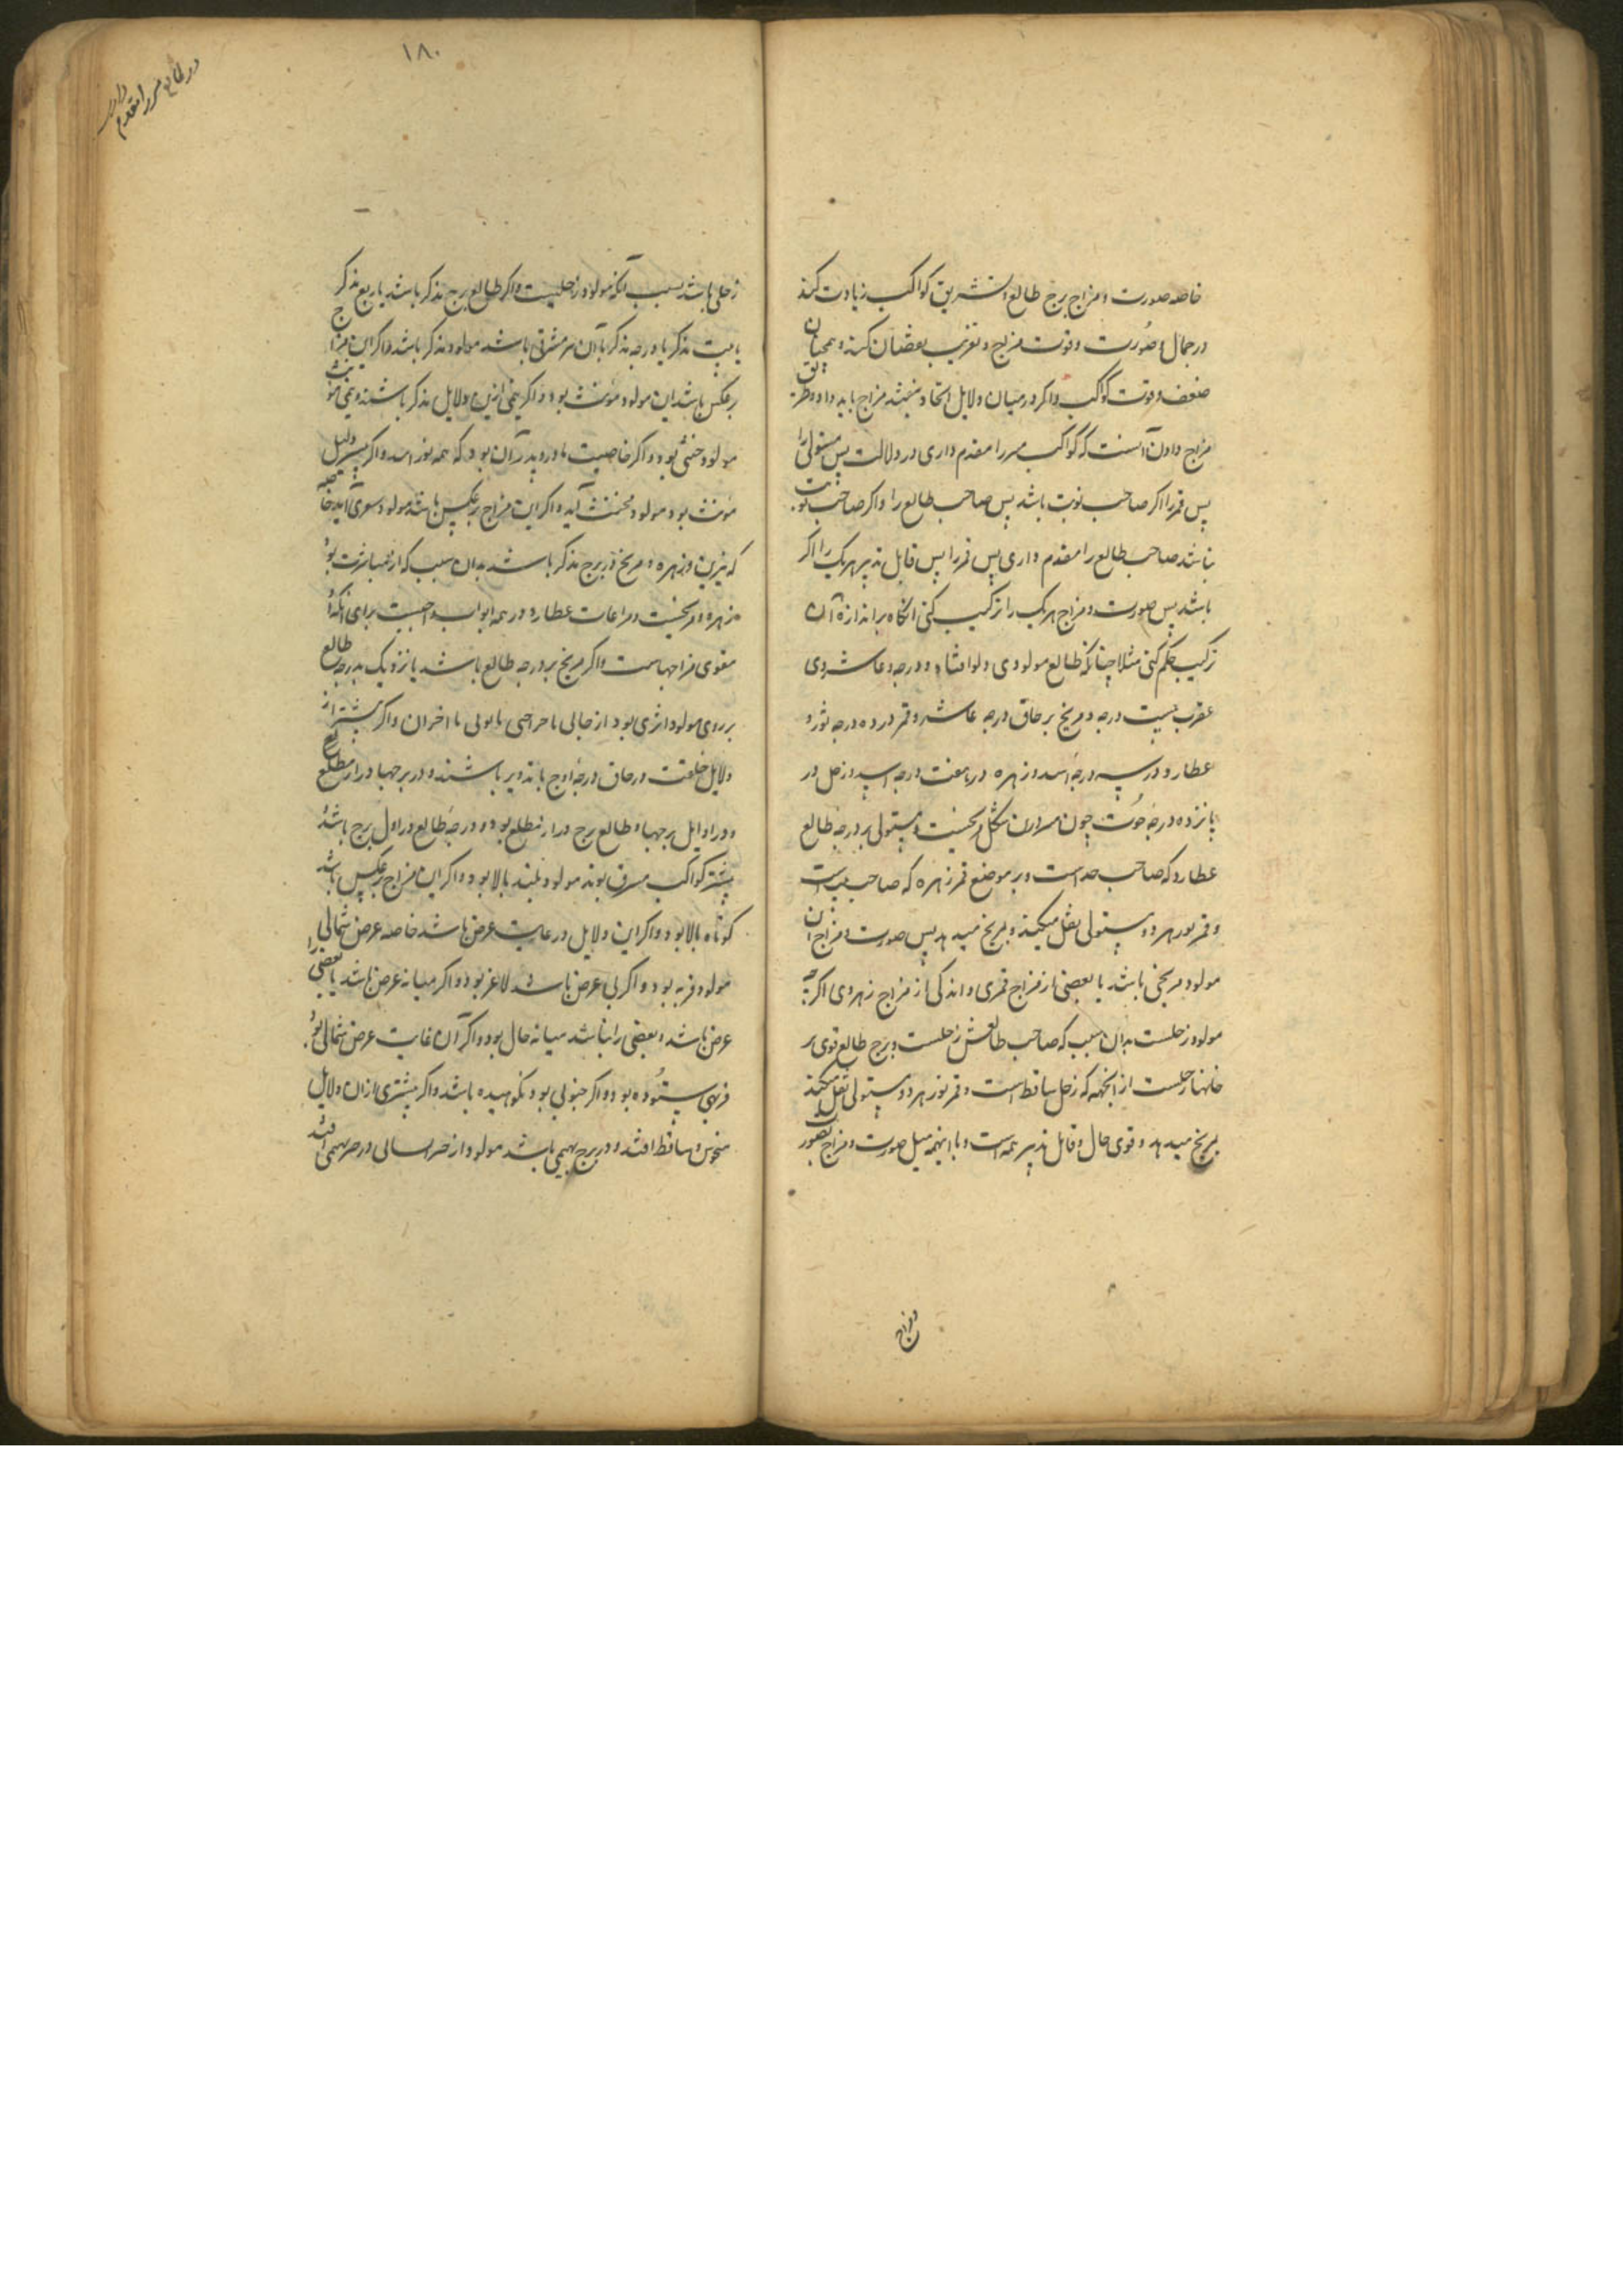 خاصه صورت و مزاج برج طالع و تشریق کواکب زیادت کند
در جمال و صورت و قوت مزاج و تغریب نقصان کند و همچنان
ضعف و قوت کواکب و اگر در میان دلایل اتحاد نباشد مزاج باید داد و طریق
مزاج دادن آنست که کواکب را مقدم داری در دلالت پس مستولی را
پس قمر را اگر صاحب نوبت باشد پس صاحب طالع را و اگر صاحب نوبت
نباشد صاحب طالع را مقدم داری پس قمر را پس قابل تدبیر هر یک را اگر
باشد پس صورت و مزاج هر یک را ترکیب کنی آنگاه بر اندازه آن
ترکیب حکم کنی مثلا چنانکه طالع مولودی دلو افتاد دو درجه و عاشر وی
عقرب بیست درجه و مریخ بر حاق درجه عاشر و قمر در ده درجه ثور و
عطارد در سه درجه اسد و زهره در هفت درجه اسد و زحل در
پانزده درجه حوت چون شکل مریخست و مستولی بر درجه طالع
عطارد که صاحب حد است و بر موضع قمر زهره که صاحب بیت است
و قمر نور هر دو مستولی نقل میکند و بمریخ میدهد پس صورت و مزاج آن
مولود مریخی باشد با بعضی از مزاج قمری و اندکی از مزاج زهروی اگرچه
مولود زحلست بدان سبب که صاحب طالعش زحلست و برج طالع قوی تر
خانهٔا زحلست از انجهه که زحل ساقط است و قمر نور هر دو مستولی نقل میکند
بمریخ میدهد و قوی حال و قابل تدبیر همه است و با اینهمه میل صورت و مزاج بصورت
و مزاج
۱۸۰
زحلی باشد بسبب آنکه مولود زحلیست و اگر طالع برج مذکر باشد یا ربع مذکر
یا بیت مذکر یا درجه مذکر یا آن مشرقی باشد مولود مذکر باشد و اگر این مزاج
برعکس باشد این مولود مونث بود و اگر نیمی ازین دلایل مذکر باشند و نیمی مونث
مولود خنثی بود و اگر خاصیت بود که همه نور و اگر بیشتر دلیل
مونث بود مولود مخنث آید و اگر این مزاج برعکس باشد مولود سعتری آید خاصه
که نیرین و زهره و مریخ در برج مذکر باشد بدان سبب که بود
زهره و مریخست و مراعات عطارد در همه ابواب واجبست برای آنکه او
مقوی مزاجهاست و اگر مریخ بر درجه طالع باشد یا نزدیک بدرجه طالع
بر روی مولود اثری بود از خالی یا جراحتی و اگر بیشتر از
دلایل خلقت در حاق درجه اوج یا تدویر باشند و در برجها دراز مطلع
و در اوایل برجها و طالع برج دراز مطلع بود و درجه طالع در اول برج باشد
بیشتر کواکب مشرق بوند مولود بلند بالا بود و اگر این مزاج برعکس باشد
کوتاه بالا بود و اگر این دلایل در غایت عرض باشد خاصه عرض شمالی
مولود فربه بود و اگر بی عرض باشد لاغر بود و اگر میانه عرض باشد یا بعضی را
عرض باشد و بعضی را نباشد میانه حال بود و اگر آن غایت عرض شمالی بود
فربهی ستوده بود و اگر جنوبی بود نکوهیده باشد و اگر بیشتری از ان دلایل
منحوس و ساقط افتند و در برج بهیمی باشد مولود از در بهیمی افتد